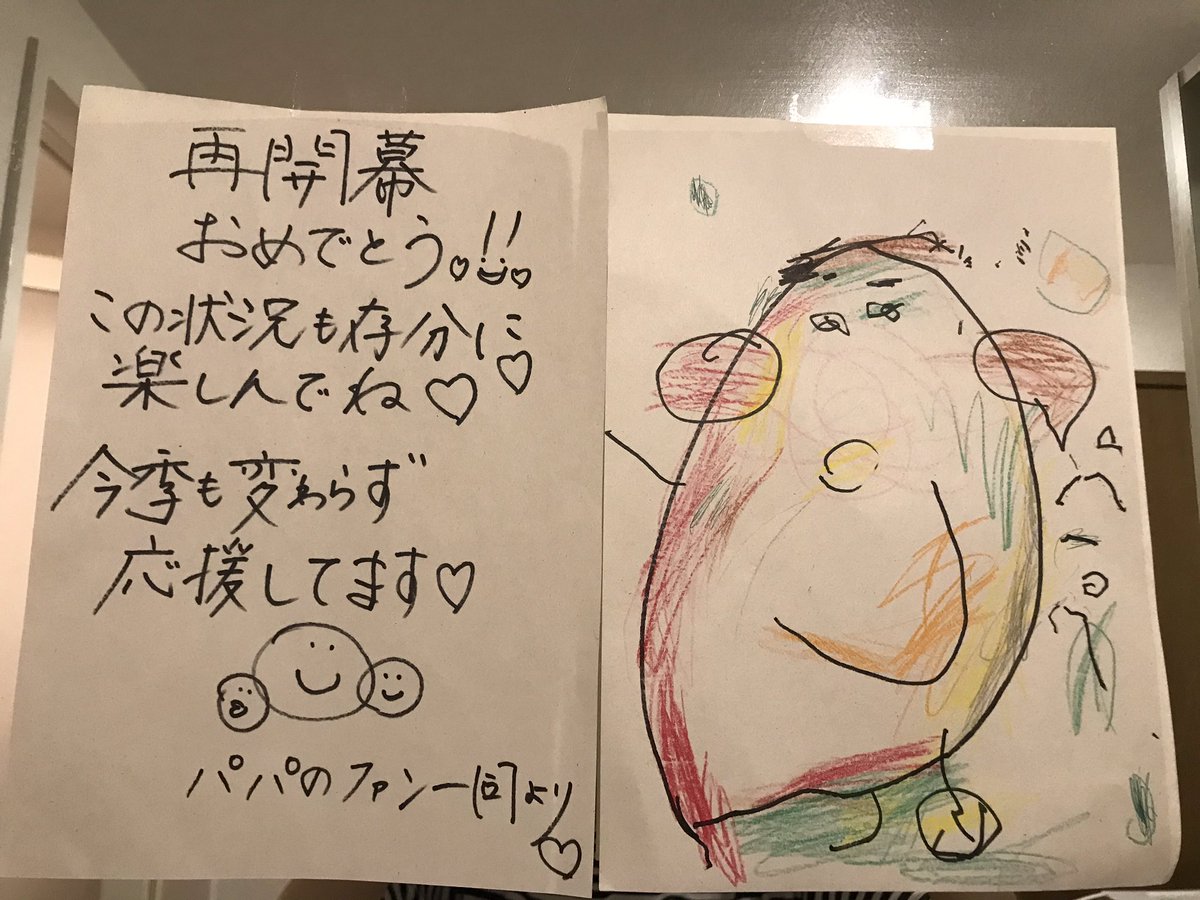 再開幕
おめでとう。!!
この状況も存分に
楽しんでね♡♡
今季も変わらず
応援してます♡
パパのファン一同より♡